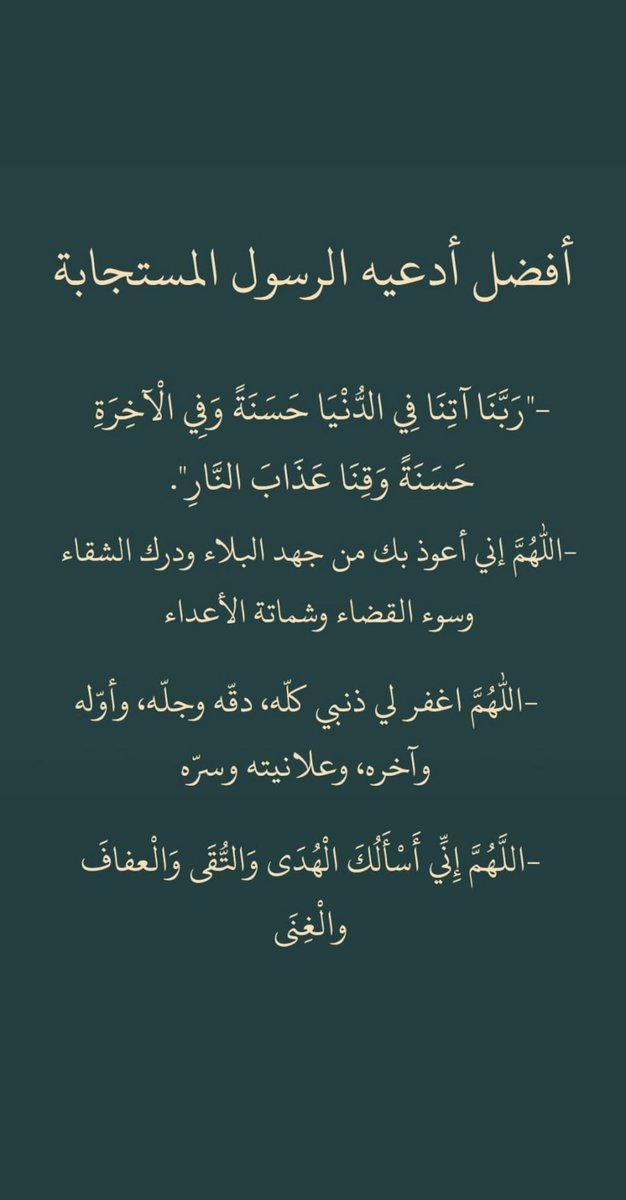 أفضل أدعيه الرسول المستجابة
-"رَبَّنَا آتِنَا فِي الدُّنْيَا حَسَنَةً وَفِي الْآخِرَةِ
حَسَنَةً وَقِنَا عَذَابَ النَّارِ".
-اللّٰهُمَّ إني أعوذ بك من جهد البلاء ودرك الشقاء
وسوء القضاء وشماتة الأعداء
-اللّٰهُمَّ اغفر لي ذنبي كلّه، دقّه وجلّه، وأوّله
وآخره، وعلانيته وسرّه
-اللَّهُمَّ إِنِّي أَسْأَلُكَ الْهُدَى وَالتُّقَى وَالْعفافَ
والْغِنَى